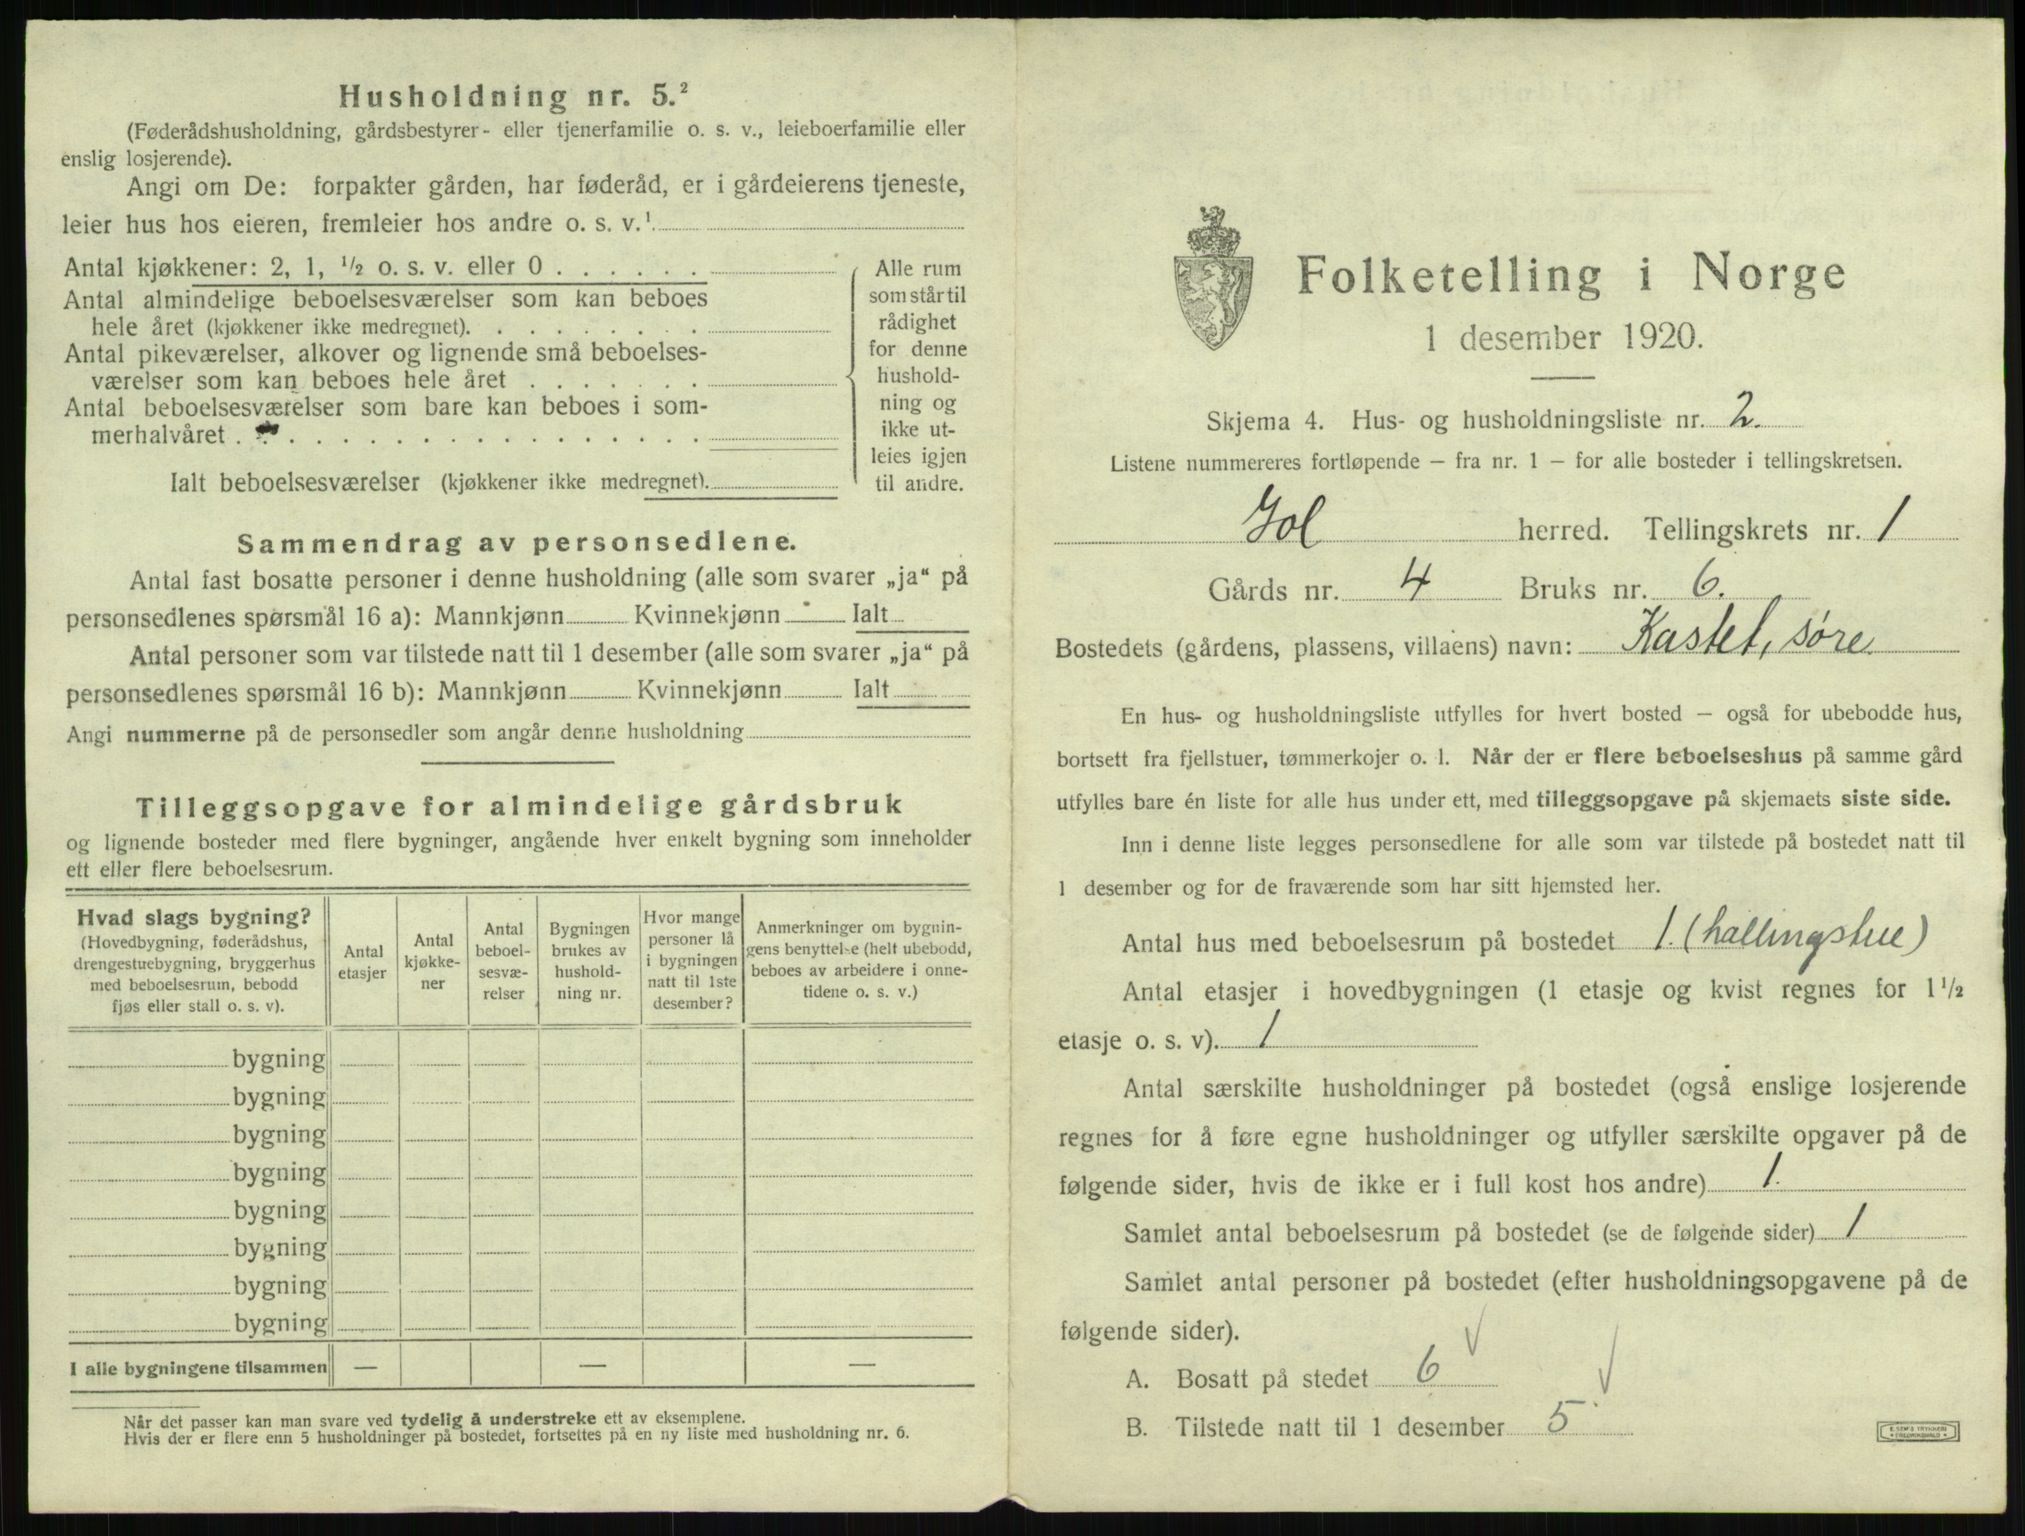 Husholdning nr. 5.²
(Føderådshusholdning, gårdsbestyrer- eller tjenerfamilie o. s. v., leieboerfamilie eller
enslig losjerende).
Angi om De: forpakter gården, har føderåd, er i gårdeierens tjeneste,
leier hus hos eieren, fremleier hos andre o. s. v.¹
Antal kjøkkener: 2, 1, ½ o. s. v. eller 0 . . . . . .
Antal almindelige beboelsesværelser som kan beboes
hele året (kjøkkener ikke medregnet). . . . . . . . .
Antal pikeværelser, alkover og lignende små beboelses-
værelser som kan beboes hele året . . . . . . .
Antal beboelsesværelser som bare kan beboes i som-
merhalvåret . . . . . . . . . . . . . . . . .
Ialt beboelsesværelser (kjøkkener ikke medregnet).
Alle rum
som står til
rådighet
for denne
hushold-
ning og
ikke ut-
leies igjen
til andre.
Sammendrag av personsedlene.
Antal fast bosatte personer i denne husholdning (alle som svarer „ja“ på
personsedlenes spørsmål 16 a): Mannkjønn Kvinnekjønn Ialt
Antal personer som var tilstede natt til 1 desember (alle som svarer „ja“ på
personsedlenes spørsmål 16 b): Mannkjønn Kvinnekjønn Ialt
Angi nummerne på de personsedler som angår denne husholdning
Tilleggsopgave for almindelige gårdsbruk
og lignende bosteder med flere bygninger, angående hver enkelt bygning som inneholder
ett eller flere beboelsesrum.
Hvad slags bygning?
(Hovedbygning, føderådshus,
drengestuebygning, bryggerhus
med beboelsesrum, bebodd
fjøs eller stall o. s. v).
Antal
etasjer
Antal
kjøkke-
ner
Antal
beboel-
sesvæ-
relser
Bygningen
brukes av
hushold-
ning nr.
Hvor mange
personer lå
i bygningen
natt til 1ste
desember?
Anmerkninger om bygnin-
gens benyttelse (helt ubebodd,
beboes av arbeidere i onne-
tidene o. s. v.)
bygning
bygning
bygning
bygning
bygning
bygning
bygning
bygning
I alle bygningene tilsammen — — —
Når det passer kan man svare ved tydelig å understreke ett av eksemplene.
Hvis der er flere enn 5 husholdninger på bostedet, fortsettes på en ny liste med husholdning nr. 6.
Folketelling i Norge
1 desember 1920.
Skjema 4. Hus- og husholdningsliste nr. 2.
Listene nummereres fortløpende – fra nr. 1 – for alle bosteder i tellingskretsen.
Gol herred. Tellingskrets nr. 1
Gårds nr. 4 Bruks nr. 6.
Bostedets (gårdens, plassens, villaens) navn: Kastet, søre.
En hus- og husholdningsliste utfylles for hvert bosted – også for ubebodde hus,
bortsett fra fjellstuer, tømmerkojer o. l. Når der er flere beboelseshus på samme gård
utfylles bare én liste for alle hus under ett, med tilleggsopgave på skjemaets siste side.
Inn i denne liste legges personsedlene for alle som var tilstede på bostedet natt til
1 desember og for de fraværende som har sitt hjemsted her.
Antal hus med beboelsesrum på bostedet 1. (hallingstue)
Antal etasjer i hovedbygningen (1 etasje og kvist regnes for 1½
etasje o. s. v). 1
Antal særskilte husholdninger på bostedet (også enslige losjerende
regnes for å føre egne husholdninger og utfyller særskilte opgaver på de
følgende sider, hvis de ikke er i full kost hos andre) 1.
Samlet antal beboelsesrum på bostedet (se de følgende sider) 1
Samlet antal personer på bostedet (efter husholdningsopgavene på de
følgende sider).
A. Bosatt på stedet 6
B. Tilstede natt til 1 desember 5